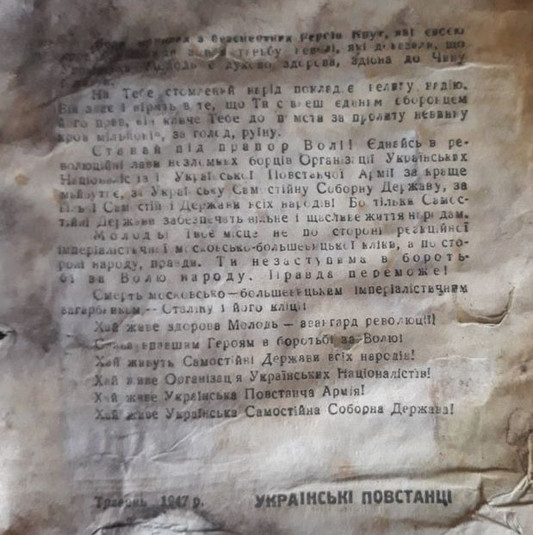 з безсмертних Героїв Крут, які своєю
боротьбу які доказали, що
духово здорова, здібна до Чину
На Тебе стомлений нарід покладає велику надію.
Він знає і вірить в те, що Ти єдиним оборонцем
його прав, він кличе Тебе до помсти за пролиту невинну
кров мільйонів, за голод, руїну.
Ставай під прапор Волі! Єднайсь в ре-
волюційні лави незломних борців Організації Українських
Націоналістів і Української Повстанчої Армії за краще
майбутнє, за Українську Самостійну Соборну Державу, за
Вільні Самостійні Держави всіх народів! Бо тільки Самос-
тійні Держави забезпечать вільне і щасливе життя народам.
Молодь! Твоє місце не по стороні реакційної
імперіялістичної московсько-большевицької кліки, а по сто-
роні народу, правди. Ти незаступима в бороть-
бі за Волю народу. Правда переможе!
Смерть московсько—большевицьким імперіялістичним
загарбникам — Сталіну і його кліці!
Хай живе здорова Молодь — авангард революції!
Слава впавшим Героям в боротьбі за Волю!
Хай живуть Самостійні Держави всіх народів!
Хай живе Організація Українських Націоналістів!
Хай живе Українська Повстанча Армія!
Хай живе Українська Самостійна Соборна Держава!
Травень 1947 р. УКРАЇНСЬКІ ПОВСТАНЦІ